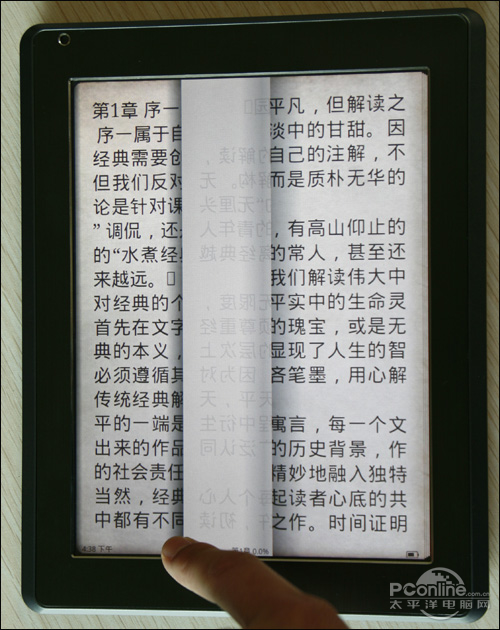 第1章 序一
序一属于自
经典需要创
但我们反对
论是针对课
” 调侃，还
的“水煮经
来越远。
对经典的个
首先在文字
典的本义，
必须遵循其
传统经典解
平的一端是
出来的作品
的社会责任
当然，经典
中都有不同
平凡，但解读之
淡中的甘甜。因
自己的注解，不
而是质朴无华的
，有高山仰止的
的常人，甚至还
我们解读伟大中
平实中的生命灵
的瑰宝，或是无
显现了人生的智
吝笔墨，用心解
寓言，每一个文
的历史背景，作
精妙地融入独特
起读者心底的共
之作。时间证明
4:38 下午
第1章 0.0%
PConline.com.cn
太平洋电脑网